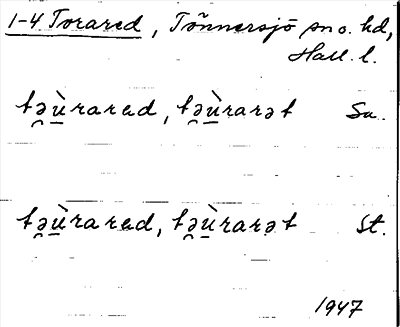 1-4 Torared, Tönnersjö sn o. hd,
Hall. l.
tə̯ù̱rarɛd, tə̯ù̱rarət Su.
tə̯ù̱rarɛd, tə̯ù̱rarət St.
1947